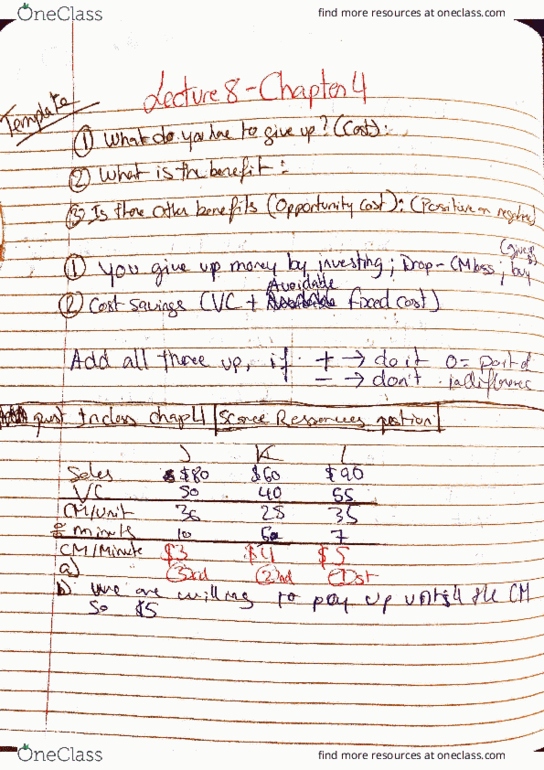 OneClass
find more resources at oneclass.com
Lecture 8 - Chapter 4
Template
① What do you have to give up? (Cost):
② What is the benefit:
③ Is there other benefits (Opportunity cost): (Positive or negative)
(give up)
① you give up money by investing; Drop - CM loss; buy
Avoidable
② Cost savings (VC + fixed cost)
Add all three up, if + → do it 0 = point of
- → don't indifference
quest Inclass chap 4 Scarce Resources portion
J K L
Sales $80 $60 $90
VC 50 40 55
CM/Unit 36 28 35
# minute 10 7
CM/Minute $3 $4 $5
a) ③rd ②nd ①st
b) we are willing to pay up until the CM
So $5
OneClass
find more resources at oneclass.com